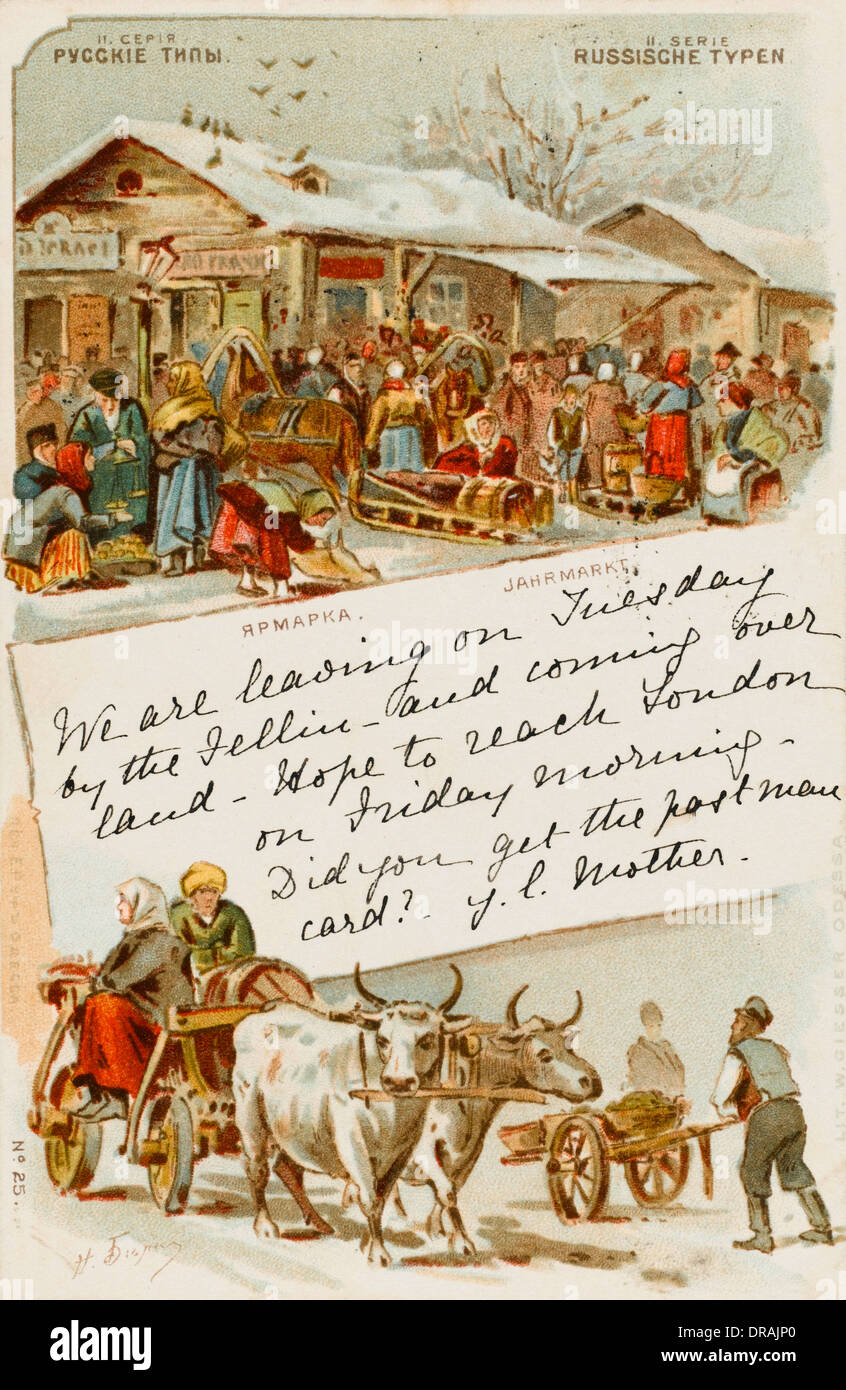 II. СЕРІЯ
РУССКІЕ ТИПЫ.
II. SERIE
RUSSISCHE TYPEN
alamy
ЯРМАРКА.
JAHRMARKT.
We are leaving on Tuesday
by the Fellin - and coming over
land - Hope to reach London
on Friday morning -
Did you get the postman
card? y. l. Mother.
alamy
LIT. W. GIESSER, ODESSA.
No 25.
alamy
Image ID: DRAJP0
www.alamy.com